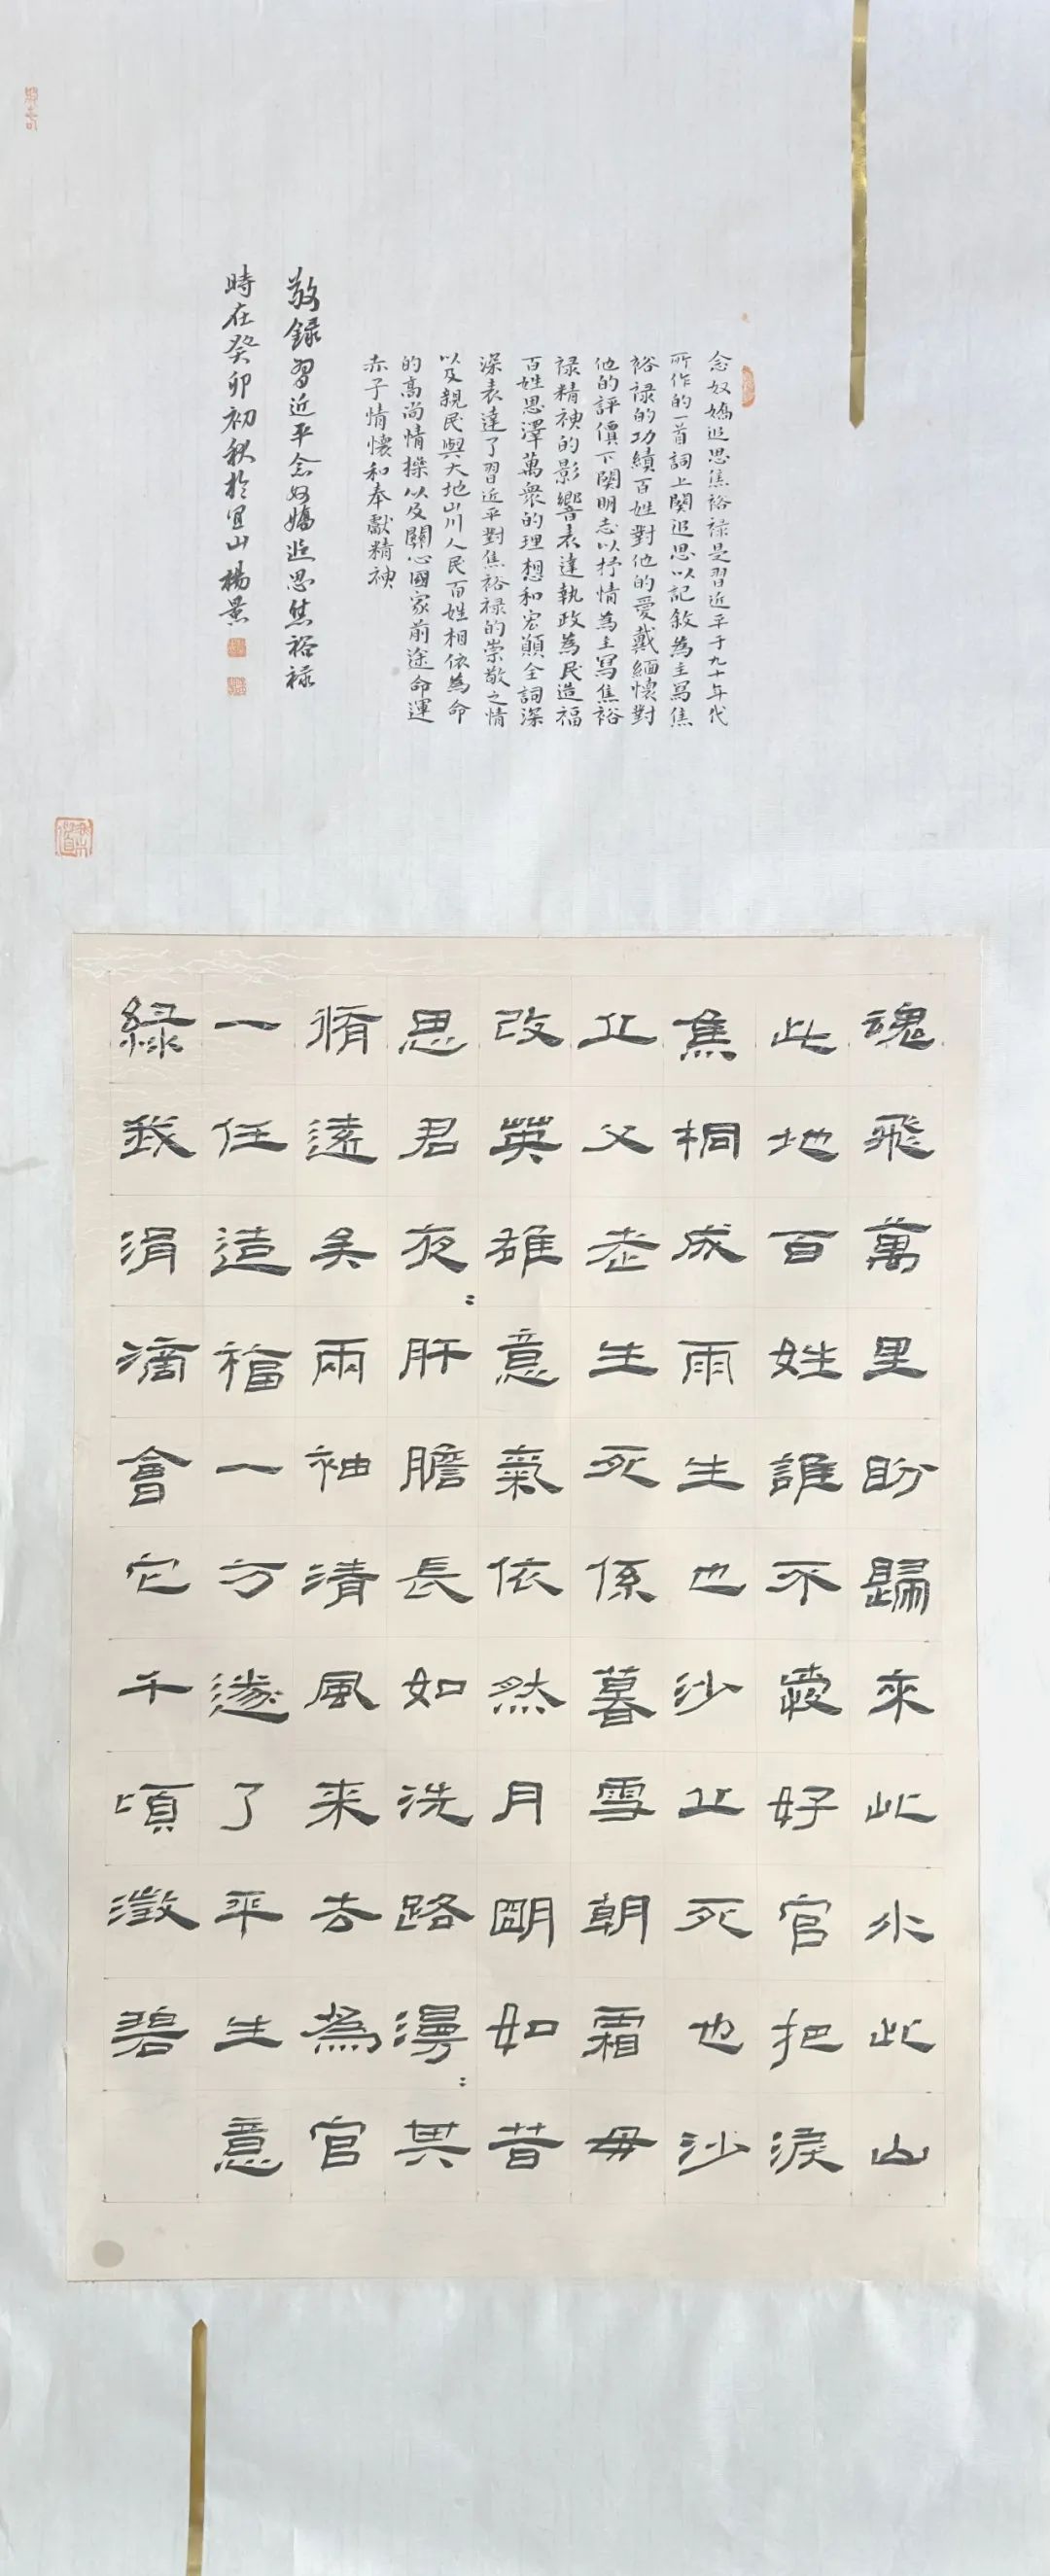 念奴嬌追思焦裕禄是習近平于九十年代
所作的一首詞上闋追思以記敘為主寫焦
裕禄的功績百姓對他的愛戴緬懷對
他的評價下闋明志以抒情為主寫焦裕
禄精神的影響表達執政為民造福
百姓恩澤萬衆的理想和宏願全詞深
深表達了習近平對焦裕禄的崇敬之情
以及親民與大地山川人民百姓相依為命
的高尚情操以及關心國家前途命運
赤子情懷和奉獻精神
敬錄習近平念奴嬌追思焦裕禄
時在癸卯初秋於宜山楊景
魂飛萬里盼歸來此水此山
此地百姓誰不愛好官把淚
焦桐成雨生也沙丘死也沙
丘父老生死係暮雪朝霜毋
改英雄意氣依然月明如昔
思君夜〻肝膽長如洗路漫〻其
脩遠矣兩袖清風来去為官
一任造福一方遂了平生意
綠我涓滴會它千頃澂碧